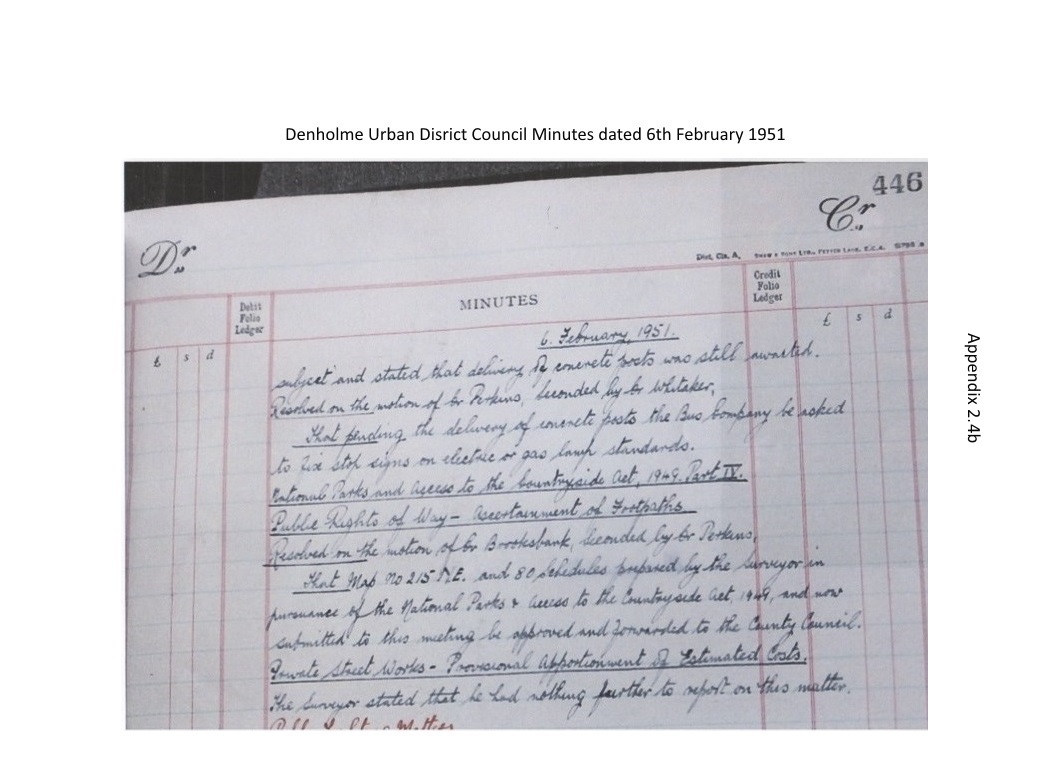 Denholme Urban Disrict Council Minutes dated 6th February 1951
446
Dr
Cr
Dist. Cla. A.
Debit
Folio
Ledger
MINUTES
Credit
Folio
Ledger
£ s d
£ s d
6. February, 1951.
subject and stated that delivery of concrete posts was still awaited.
Resolved on the motion of Cr Perkins, seconded by Cr Whitaker,
That pending the delivery of concrete posts the Bus Company be asked
to fix stop signs on electric or gas lamp standards.
National Parks and Access to the Countryside Act, 1949. Part IV.
Public Rights of Way – Ascertainment of Footpaths
Resolved on the motion of Cr Brooksbank, seconded by Cr Perkins,
That Map No 215 N.E. and 80 Schedules prepared by the Surveyor in
pursuance of the National Parks & Access to the Countryside Act, 1949, and now
submitted to this meeting be approved and forwarded to the County Council.
Private Street Works – Provisional Apportionment of Estimated Costs.
The Surveyor stated that he had nothing further to report on this matter.
Appendix 2.4b